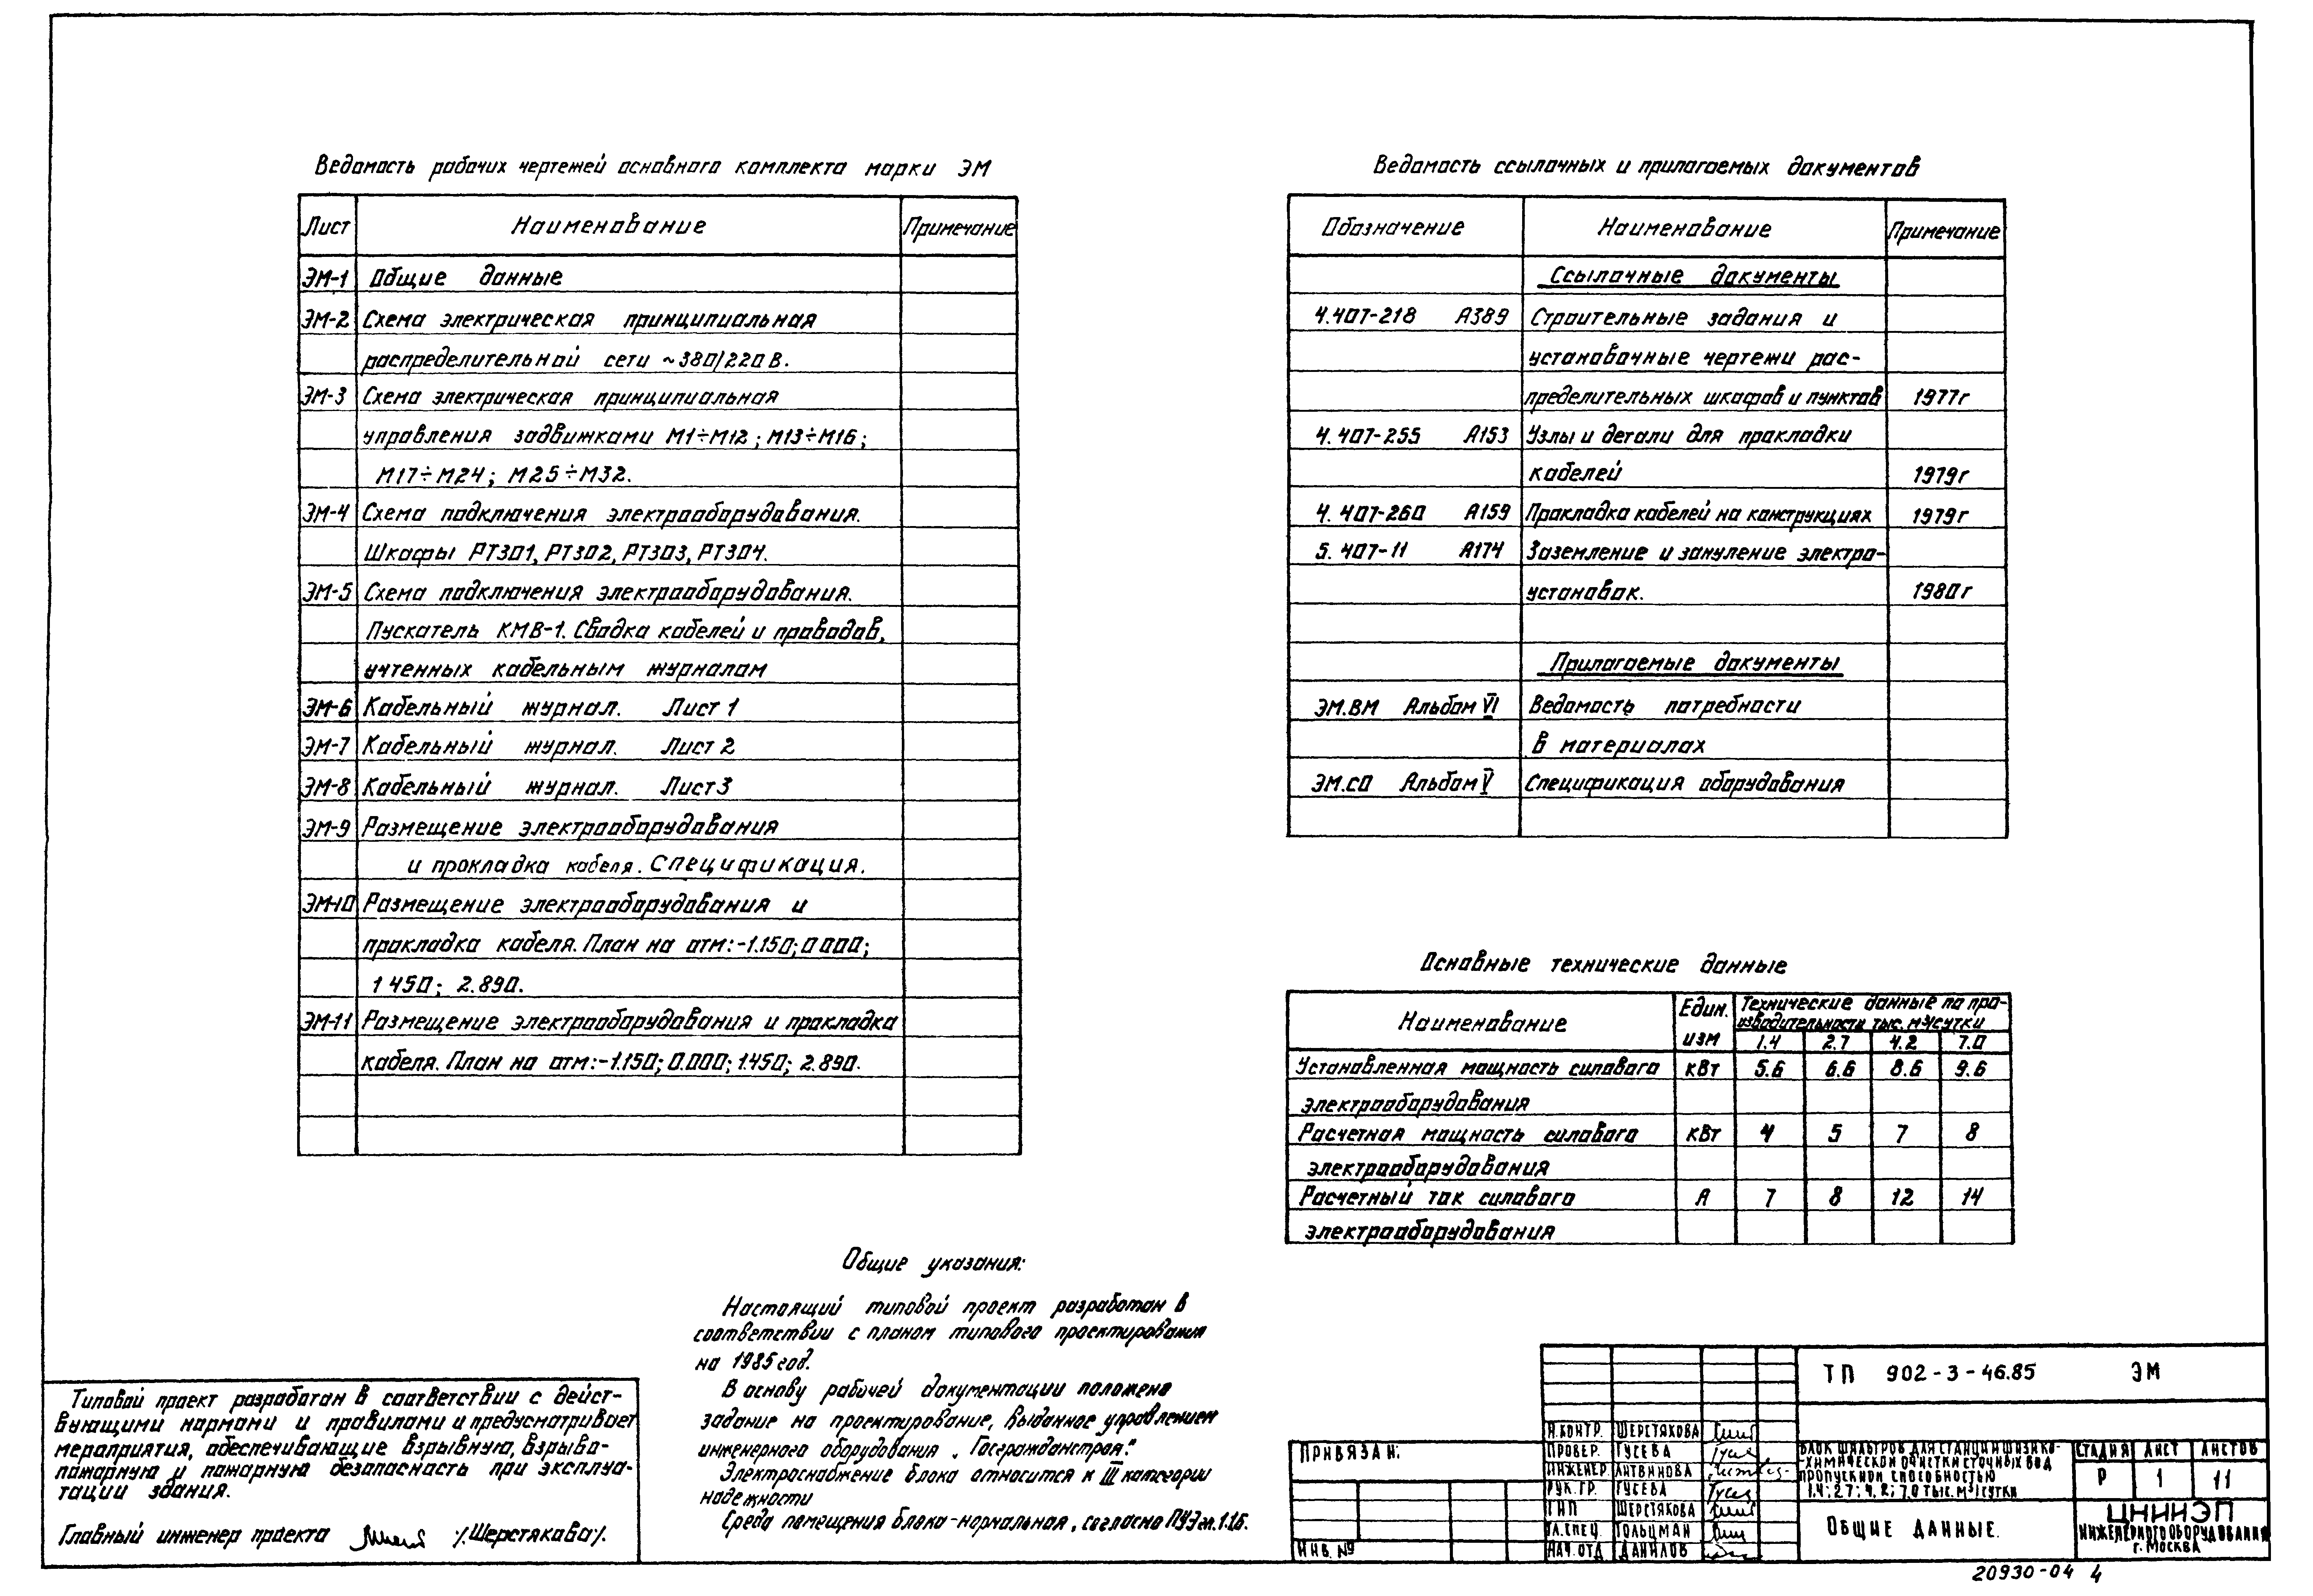 Ведомость рабочих чертежей основного комплекта марки ЭМ
Лист Наименование Примечание
ЭМ-1 Общие данные
ЭМ-2 Схема электрическая принципиальная
распределительной сети ~380/220В.
ЭМ-3 Схема электрическая принципиальная
управления задвижками М1÷М12; М13÷М16;
М17÷М24; М25÷М32.
ЭМ-4 Схема подключения электрооборудования.
Шкафы РТ301, РТ302, РТ303, РТ304.
ЭМ-5 Схема подключения электрооборудования.
Пускатель КМВ-1. Сводка кабелей и проводов,
учтенных кабельным журналом
ЭМ-6 Кабельный журнал. Лист 1
ЭМ-7 Кабельный журнал. Лист 2
ЭМ-8 Кабельный журнал. Лист 3
ЭМ-9 Размещение электрооборудования
и прокладка кабеля. Спецификация.
ЭМ-10 Размещение электрооборудования и
прокладка кабеля. План на отм:-1.150; 0 000;
1 450; 2.890.
ЭМ-11 Размещение электрооборудования и прокладка
кабеля. План на отм:-1.150; 0.000; 1.450; 2.890.
Ведомость ссылочных и прилагаемых документов
Обозначение Наименование Примечание
Ссылочные документы
4.407-218 А389 Строительные задания и
установочные чертежи рас-
пределительных шкафов и пунктов 1977г
4.407-255 А153 Узлы и детали для прокладки
кабелей 1979г
4.407-260 А159 Прокладка кабелей на конструкциях 1979г
5.407-11 А174 Заземление и зануление электро-
установок. 1980г
Прилагаемые документы
ЭМ.ВМ Альбом VI Ведомость потребности
в материалах
ЭМ.СО Альбом V Спецификация оборудования
Основные технические данные
Наименование Един. изм Технические данные по про-
изводительности тыс. м³/сутки
1.4 2.7 4.2 7.0
Установленная мощность силового кВт 5.6 6.6 8.6 9.6
электрооборудования
Расчетная мощность силового кВт 4 5 7 8
электрооборудования
Расчетный ток силового А 7 8 12 14
электрооборудования
Общие указания:
Настоящий типовой проект разработан в
соответствии с планом типового проектирования
на 1985 год.
В основу рабочей документации положено
задание на проектирование, выданное управлением
инженерного оборудования „Госгражданстроя".
Электроснабжение блока относится к III категории
надежности
Среда помещения блока-нормальная, согласно ПУЭ гл.1.1.6.
Типовой проект разработан в соответствии с дейст-
вующими нормами и правилами и предусматривает
мероприятия, обеспечивающие взрывную, взрыво-
пожарную и пожарную безопасность при эксплуа-
тации здания.
Главный инженер проекта /Шерстякова/.
ПРИВЯЗАН:
ИНВ. №
Н.КОНТР. ШЕРСТЯКОВА
ПРОВЕР. ГУСЕВА
ИНЖЕНЕР. ЛИТВИНОВА
РУК. ГР. ГУСЕВА
ГИП ШЕРСТЯКОВА
ГЛ.СПЕЦ. ГОЛЬЦМАН
НАЧ.ОТД ДАНИЛОВ
ТП 902-3-46.85 ЭМ
БЛОК ФИЛЬТРОВ ДЛЯ СТАНЦИИ ФИЗИКО-
-ХИМИЧЕСКОЙ ОЧИСТКИ СТОЧНЫХ ВОД
ПРОПУСКНОЙ СПОСОБНОСТЬЮ
1.4; 2.7; 4.2; 7.0 ТЫС. М³/СУТКИ
СТАДИЯ ЛИСТ ЛИСТОВ
Р 1 11
ОБЩИЕ ДАННЫЕ.
ЦНИИЭП
ИНЖЕНЕРНОГО ОБОРУДОВАНИЯ
г. МОСКВА
20930-04 4